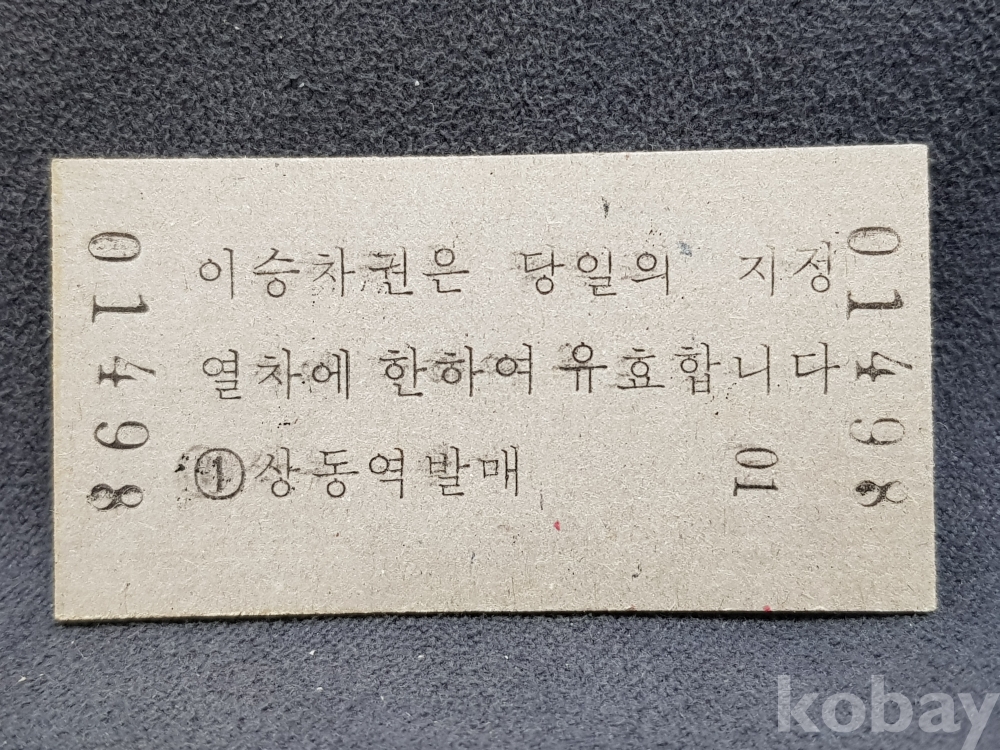 01498
이승차권은 당일의 지정
열차에 한하여 유효합니다
① 상동역발매
10
01498
kobay